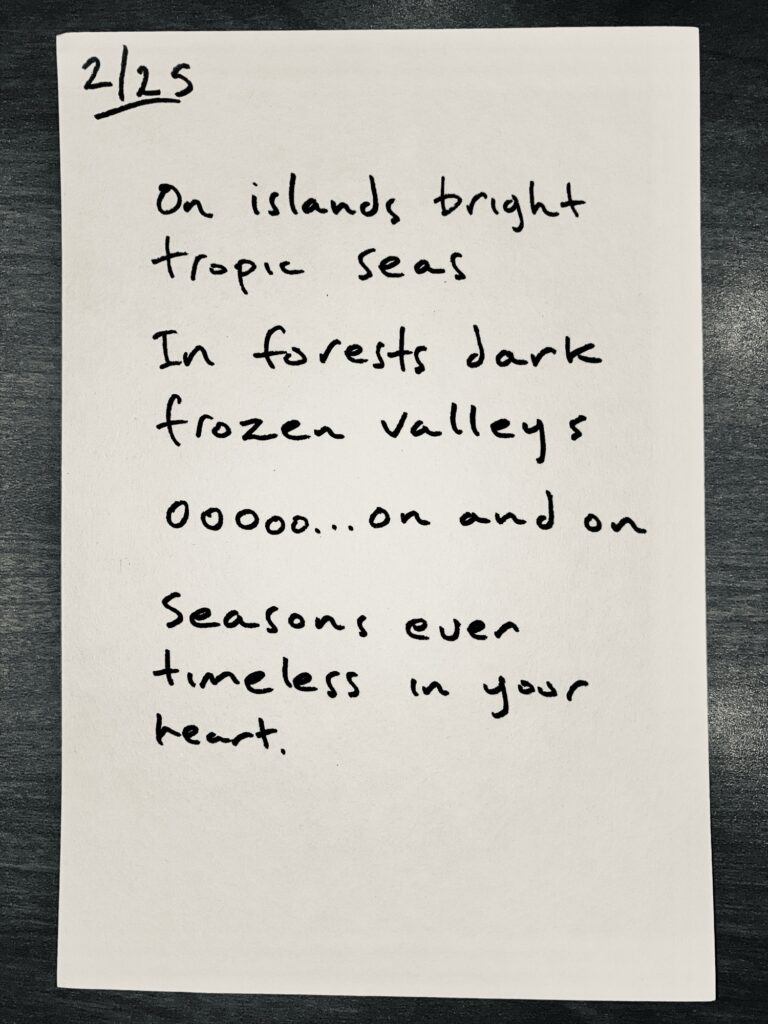 2/25
On islands bright
tropic seas
In forests dark
frozen valleys
ooooo...on and on
Seasons ever
timeless in your
heart.